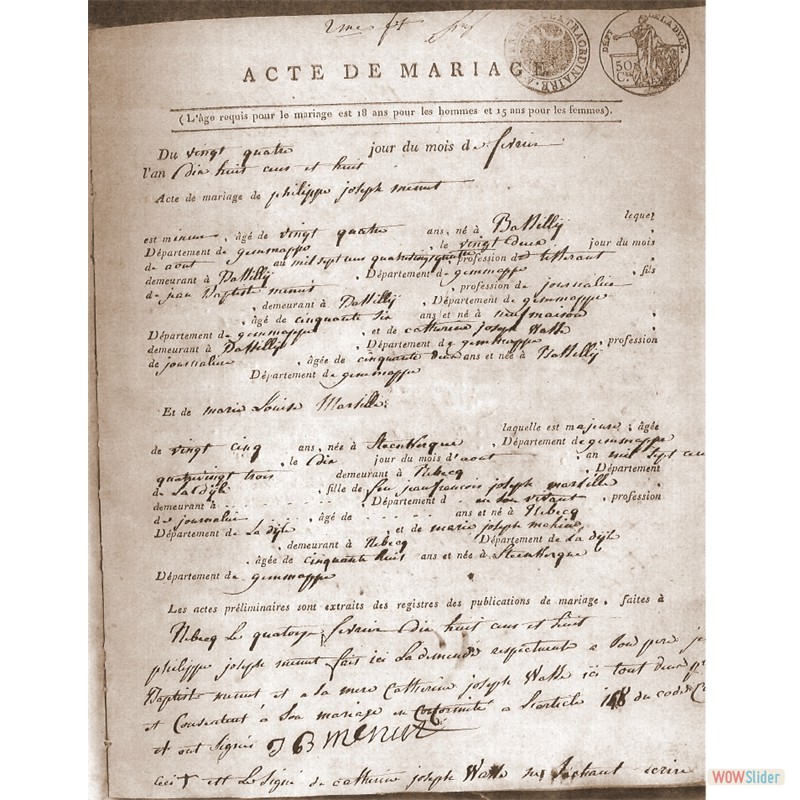 ACTE DE MARIAGE
EXTRAORDINAIRE
DÉPT DE LA DYLE
50 C.
(L'âge requis pour le mariage est 18 ans pour les hommes et 15 ans pour les femmes).
Du vingt quatre jour du mois de fevrier
l'an dix huit cens et huit
Acte de mariage de philippe joseph menut
lequel
est mineur, âgé de vingt quatre ans, né à Battilly
Département de gemmappe, le vingt deux jour du mois
de aout au mil sept cens quatrevingt quatre, profession de
demeurant à Battilly, Département de gemmappe, fils
de jean Baptiste menut, profession de journalier
, demeurant à Battilly, Département de gemmappe
, âgé de cinquante six ans et né à neufmaison
Département de gemmappe, et de catherine joseph
demeurant à Battilly, Département de gemmappe, profession
de journaliere, âgée de cinquante deux ans et née à Battilly
Département de gemmappe
Et de marie Louise Martille
laquelle est majeure, âgée
de vingt cinq ans, née à Steenkerque, Département de gemmappe
, le dix jour du mois d'aout an mil sept cens
quatrevingt trois demeurant à Rebecq, Département
de La dyle, fille de feu jean françois joseph martille
demeurant à Département d en son vivant, profession
de journalier, âgé de ans et né à Rebecq
Département de La dyle, et de marie joseph
, demeurant à Rebecq, Département de La dyle
, âgée de cinquante huit ans et née à Steenkerque
Département de gemmappe
Les actes préliminaires sont extraits des registres des publications de mariage, faites à
Rebecq le quatorze fevrier dix huit cens et huit
philippe joseph menut fait ici La demande respectueuse a son pere
Baptiste menut et a la mere Catherine joseph ici tout deux
et Consentent à Son mariage en Conformité a L'article 148 du code
et ont Signés J B menut
ceci est Le Signe de catherine joseph ne Sachant ecrire
WOWSlider